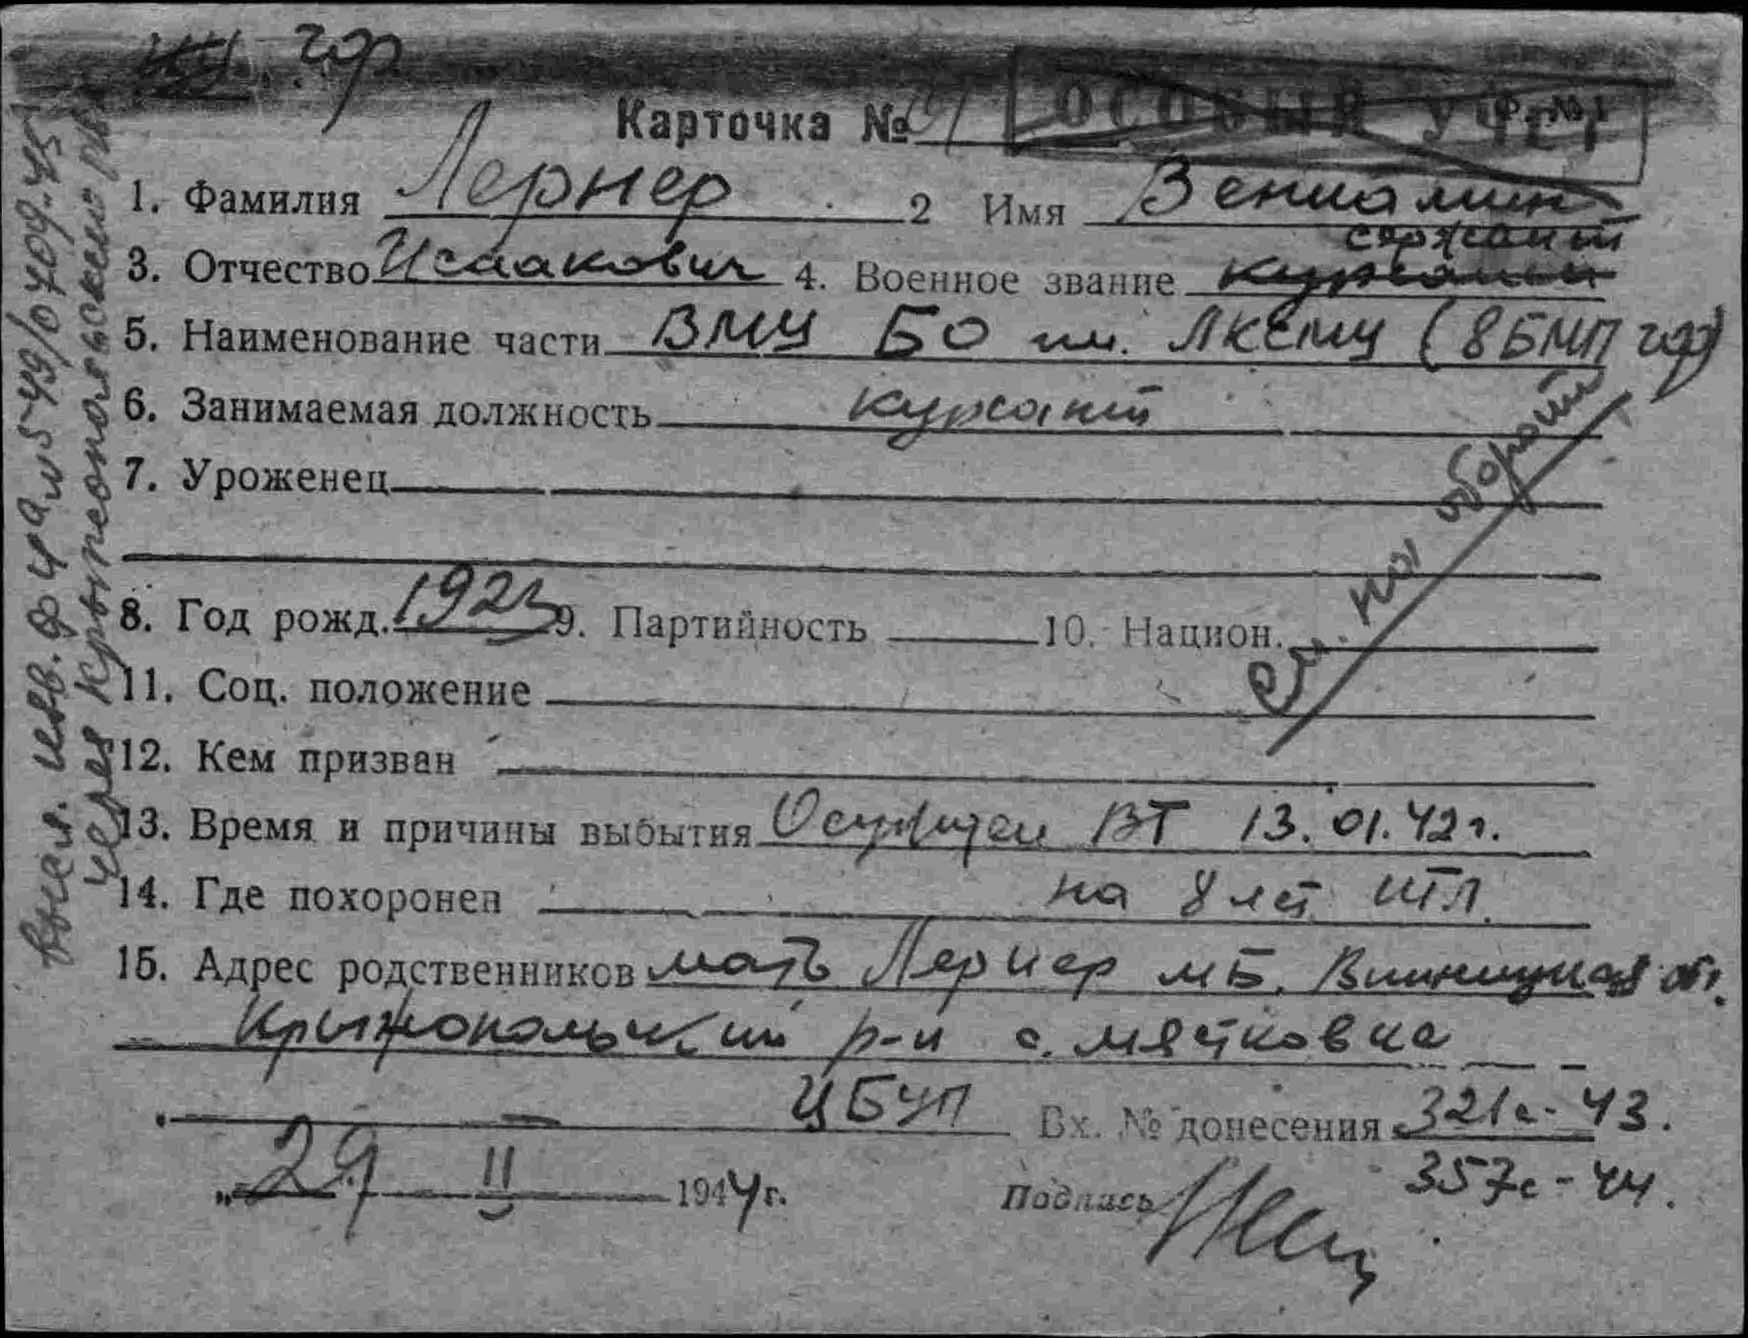 гор
ОСОБЫЙ УЧЕТ
Карточка №
1. Фамилия Лернер 2 Имя Вениамин
сержант
3. Отчество Исаакович 4. Военное звание курсант
5. Наименование части ВМУ БО им. ЛКСМУ (8БМП гор)
6. Занимаемая должность курсант
7. Уроженец
См. на обороте
8. Год рожд. 1923 9. Партийность 10. Национ.
11. Соц. положение
12. Кем призван
13. Время и причины выбытия Осужден ВТ 13.01.42г.
14. Где похоронен на 8 лет ИТЛ.
15. Адрес родственников мать Лернер МБ. Винницкая обл.
Крыжопольский р-н с. Мятковка
ЦБУП Вх. № донесения 321с-43.
„29 II 1944г. Подпись 357с-44.
Высл. изв. ф 4а №549/0709-45
через Крыжопольский РВК